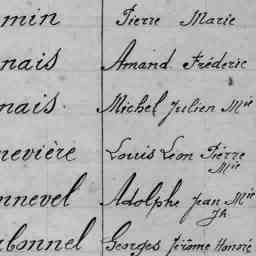 min Pierre Marie
nais Amand Fréderic
nais Michel Julien Mie
nevière Louis Leon Pierre
Mie
nnevel Adolphe Jean Mie
Jh
rbonnel Georges Jérôme Honoré